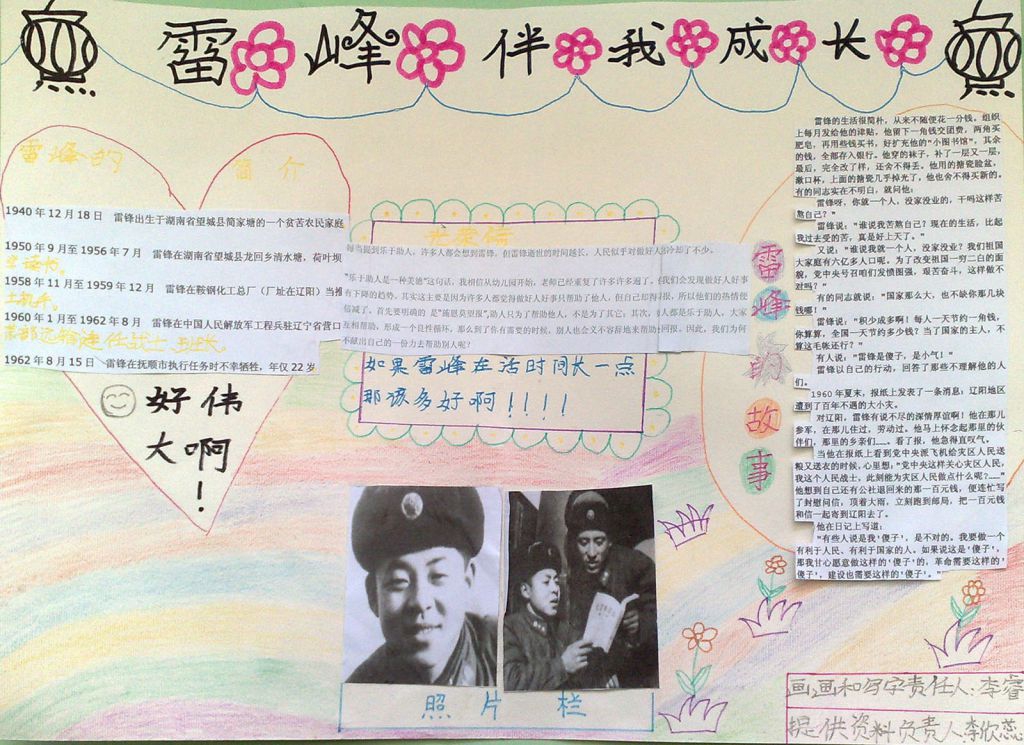 雷峰伴我成长
雷峰的
简介
1940年12月18日 雷锋出生于湖南省望城县简家塘的一个贫苦农民家庭
1950年9月至1956年7月 雷锋在湖南省望城县龙回乡清水塘，荷叶坝
1958年11月至1959年12月 雷锋在鞍钢化工总厂（厂址在辽阳）当推
1960年1月至1962年8月 雷锋在中国人民解放军工程兵驻辽宁省营口
1962年8月15日 雷锋在抚顺市执行任务时不幸牺牲，年仅22岁
好伟
大啊
！
每当提到乐于助人，许多人都会想到雷锋，但雷锋逝世的时间越长，人民似乎对做好人好冷却了不少。
"乐于助人是一种美德"这句话，我相信从幼儿园开始，老师已经重复了许多许多遍了，我们会发现做好人好事
有下降的趋势。其实这主要是因为许多人都觉得做好人好事只帮助了他人，但自己却得报，所以他们的热情便
值减了。首先要明确的是"施恩莫望报"，助人只为了帮助他人，不是为了其它；其次，人都是乐于助人，大家
互相帮助，形成一个良性循环，那么到了你有需要的时候，别人也会义不容辞地来帮助回报。因此，我们为何
不献出自己的一份力去帮助别人呢？
如果雷峰在活时间长一点
那该多好啊！！！！
雷峰的故事
雷锋的生活很简朴，从来不随便花一分钱。组织
上每月发给他的津贴，他留下一角钱交团费，两角买
肥皂，再用些钱买书，好扩充他的"小图书馆"，其余
的钱，全部存入银行。他穿的袜子，补了一层又一层，
最后，完全改了样，还舍不得丢。他用的搪瓷脸盆，
漱口杯，上面的搪瓷几乎掉光了，他也舍不得买新的。
有的同志实在不明白，就问他：
雷锋呀，你就一个人，没家没业的，干吗这样苦
熬自己？"
雷锋说："谁说我苦熬自己？现在的生活，比起
我过去受的苦，真是好上天了。"
又说："谁说我就一个人，没家没业？我们祖国
大家庭有六亿多人口呢。为了改变祖国一穷二白的面
貌，党中央号召咱们发愤图强，艰苦奋斗，这样做不
对吗？"
有的同志就说："国家那么大，也不缺你那几块
钱哪！"
雷锋说："积少成多啊！每人一天节约一角钱，
你算算，全国一天节约多少钱？当了国家的主人，不
算这笔账还行？"
有人说："雷锋是傻子，是小气！"
雷锋以自己的行动，回答了那些不理解他的人
们。
1960年夏末，报纸上发表了一条消息：辽阳地区
遭到了百年不遇的大小灾。
对辽阳，雷锋有说不尽的深情厚谊啊！他在那儿
参军，在那儿住过，劳动过。他马上怀念起那里的伙
伴们，那里的乡亲们……。看了报，他急得直叹气。
当他在报纸上看到党中央派飞机给灾区人民送
粮又送衣的时候，心里想："党中央这样关心灾区人民，
我这个人民战士，此刻能为灾区人民做点什么呢？……"
他想到自己还有公社退回来的那一百元钱，便连忙写
了封慰问信，顶着大雨，立刻跑到邮局，把一百元钱
和信一起寄到辽阳去了。
他在日记上写道：
"有些人说是我'傻子'，是不对的。我要做一个
有利于人民、有利于国家的人。如果说这是'傻子'，
那我甘心愿意做这样的'傻子'的，革命需要这样的'
傻子'，建设也需要这样的'傻子'。"
照片栏
画画和写字责任人：李睿
提供资料负责人李欣蕊